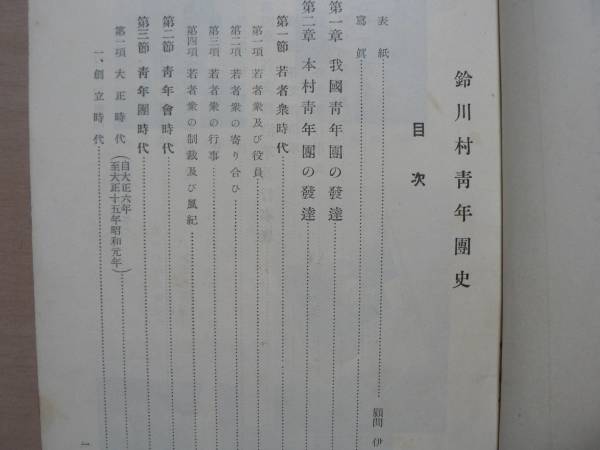 鈴川村靑年團史
目次
表紙 顧問 伊
寫眞
第一章 我國靑年團の發達
第二章 本村靑年團の發達
第一節 若者衆時代
第一項 若者衆及び役員
第二項 若者衆の寄り合ひ
第三項 若者衆の行事
第四項 若者衆の制裁及び風紀
第二節 靑年會時代
第三節 靑年團時代
第一項 大正時代(自大正六年至大正十五年昭和元年)
一、創立時代
一